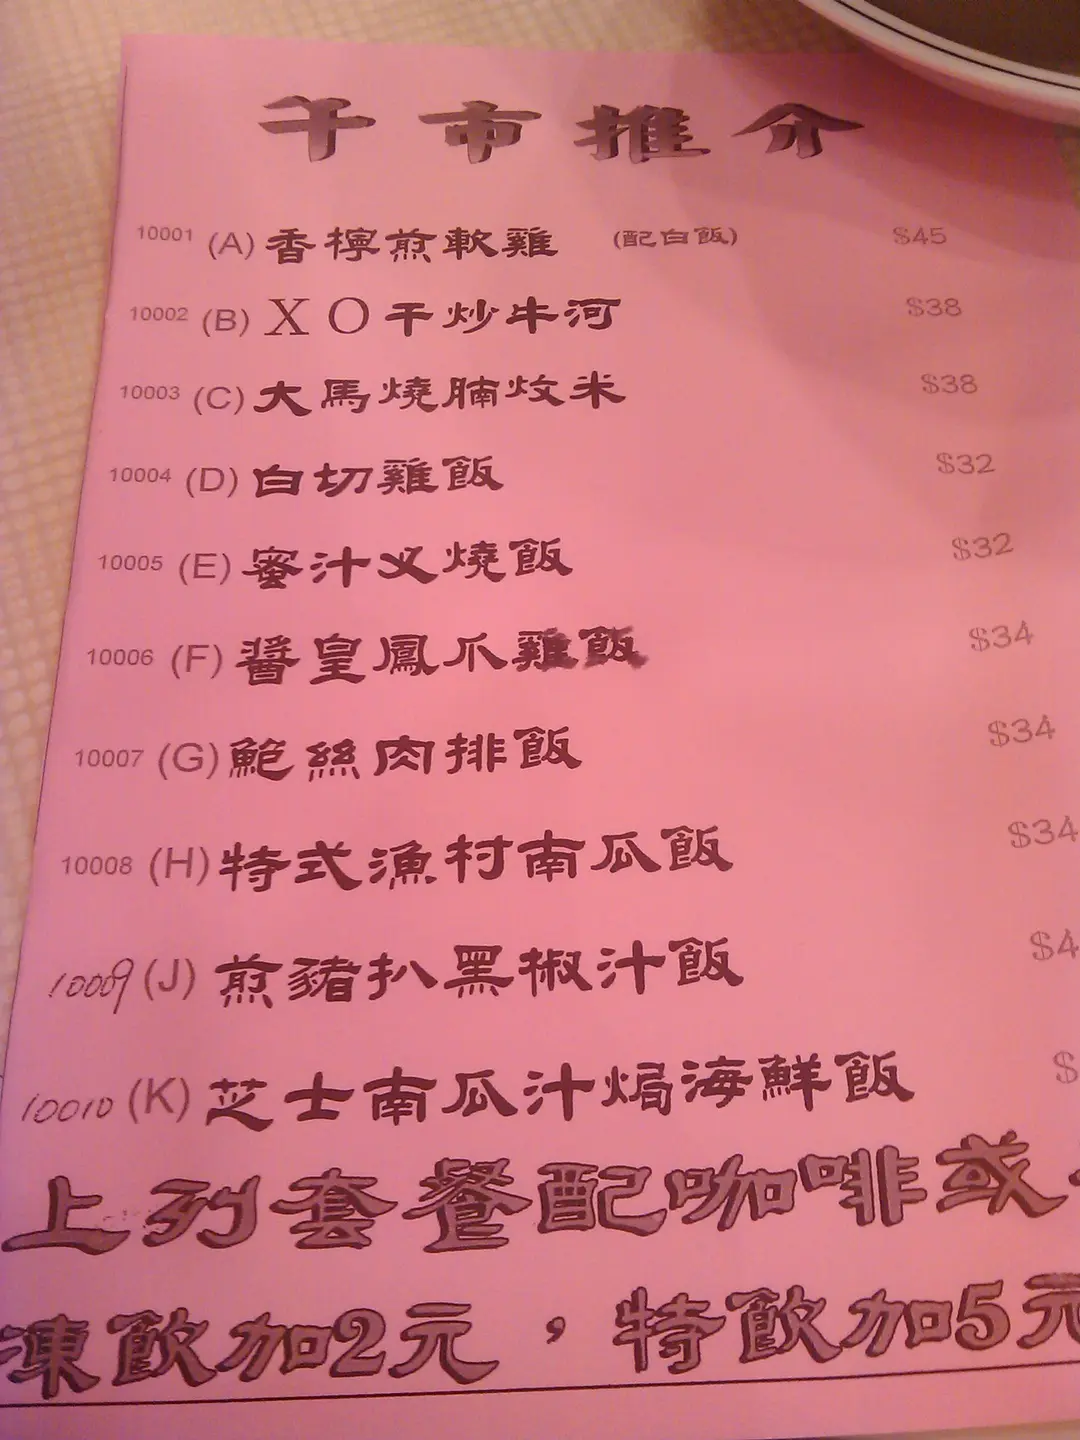 午市推介
10001 (A) 香檸煎軟雞 (配白飯) $45
10002 (B) XO干炒牛河 $38
10003 (C) 大馬燒腩炆米 $38
10004 (D) 白切雞飯 $32
10005 (E) 蜜汁义燒飯 $32
10006 (F) 醬皇鳳爪雞飯 $34
10007 (G) 鮑絲肉排飯 $34
10008 (H) 特式漁村南瓜飯 $34
10009 (J) 煎豬扒黑椒汁飯 $4
10010 (K) 芝士南瓜汁焗海鮮飯 $
上列套餐配咖啡或
凍飲加2元，特飲加5元